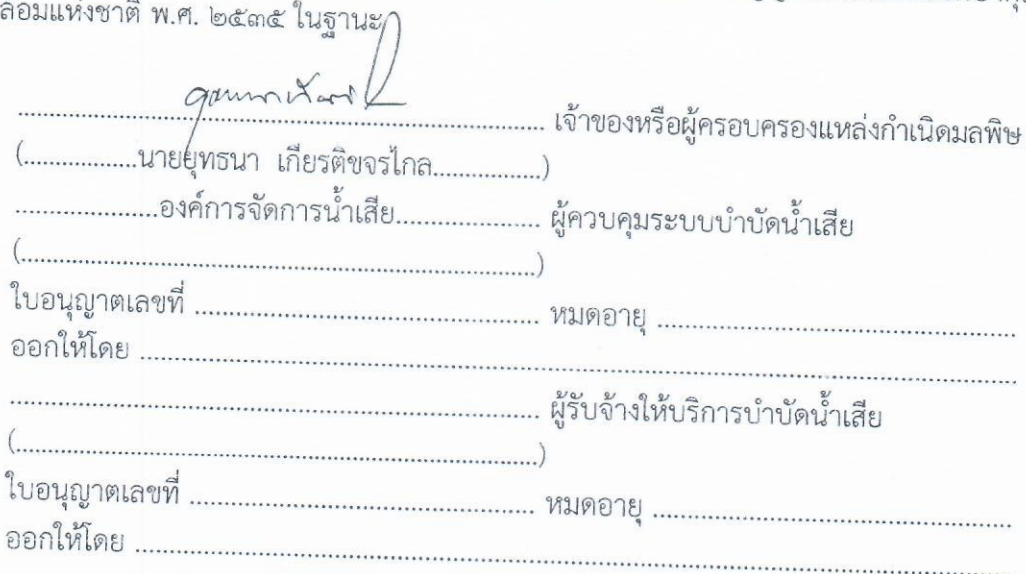 ลอมแห่งชาติ พ.ศ. ๒๕๓๕ ในฐานะ
........................................ เจ้าของหรือผู้ครอบครองแหล่งกำเนิดมลพิษ
(.................นายยุทธนา เกียรติขจรไกล................)
.....................องค์การจัดการน้ำเสีย..................... ผู้ควบคุมระบบบำบัดน้ำเสีย
(........................................)
ใบอนุญาตเลขที่ ........................................ หมดอายุ ........................................
ออกให้โดย ........................................
........................................ ผู้รับจ้างให้บริการบำบัดน้ำเสีย
(........................................)
ใบอนุญาตเลขที่ ........................................ หมดอายุ ........................................
ออกให้โดย ........................................